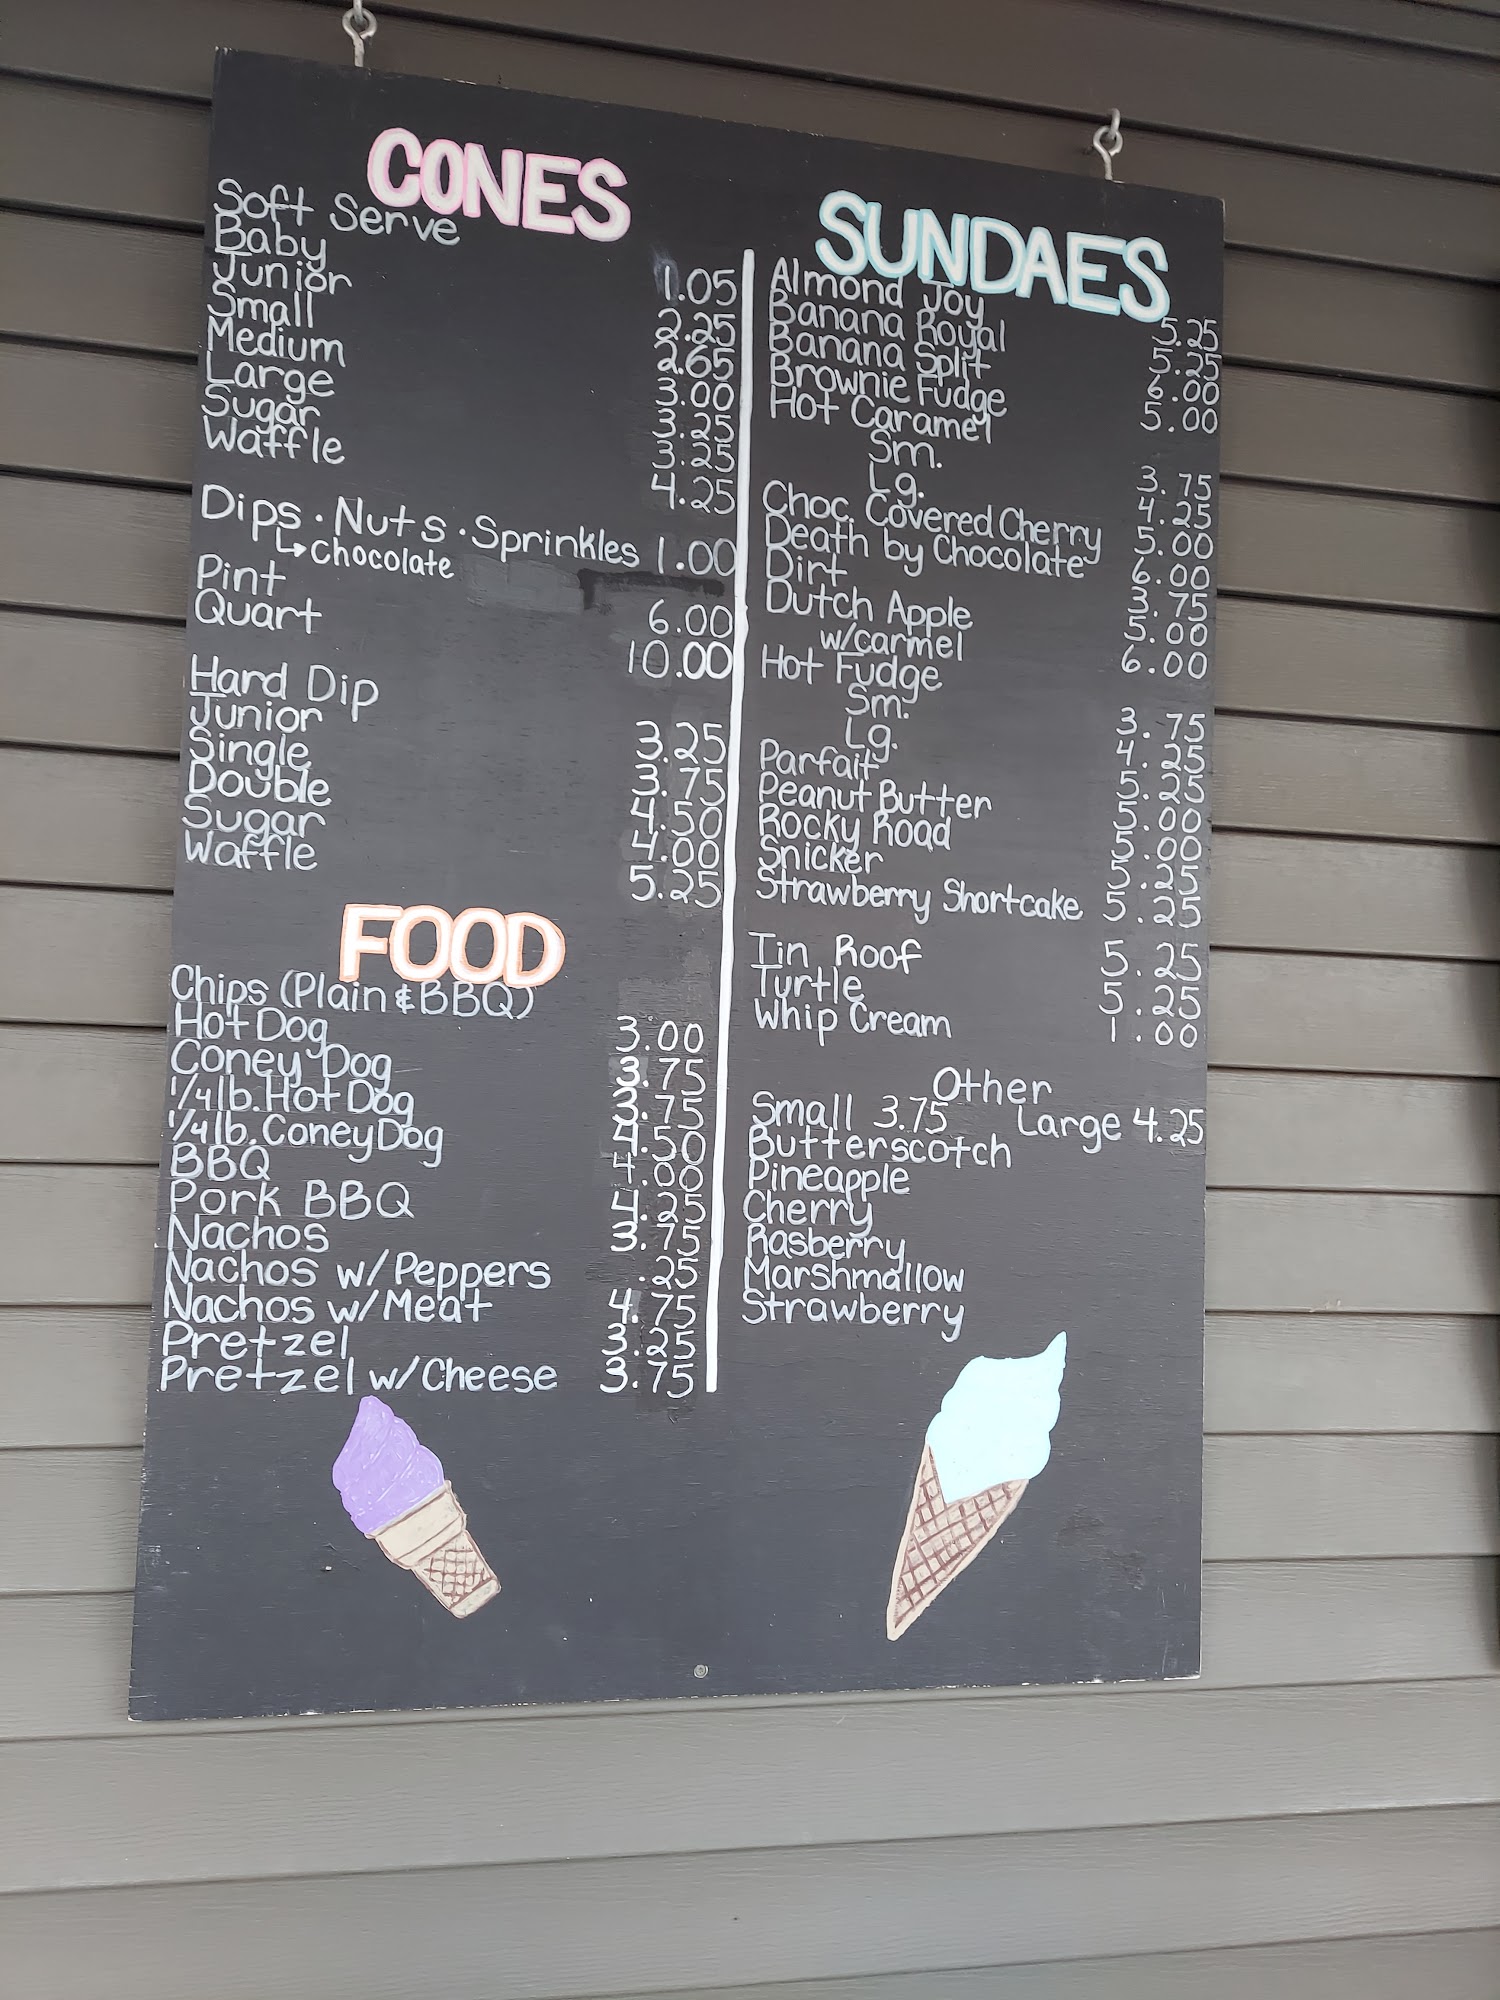 CONES
Soft Serve
Baby 1.05
Junior 2.25
Small 2.65
Medium 3.00
Large 3.25
Sugar 3.25
Waffle 4.25
Dips · Nuts · Sprinkles 1.00
↳ Chocolate
Pint 6.00
Quart 10.00
Hard Dip
Junior 3.25
Single 3.75
Double 4.50
Sugar 4.00
Waffle 5.25
FOOD
Chips (Plain & BBQ)
Hot Dog 3.00
Coney Dog 3.75
1/4 lb. Hot Dog 3.75
1/4 lb. Coney Dog 4.50
BBQ 4.00
Pork BBQ 4.25
Nachos 3.75
Nachos w/Peppers .25
Nachos w/Meat 4.75
Pretzel 3.25
Pretzel w/Cheese 3.75
SUNDAES
Almond Joy 5.25
Banana Royal 5.25
Banana Split 6.00
Brownie Fudge 5.00
Hot Caramel
Sm. 3.75
Lg. 4.25
Choc. Covered Cherry 5.00
Death by Chocolate 6.00
Dirt 3.75
Dutch Apple 5.00
w/carmel 6.00
Hot Fudge
Sm. 3.75
Lg. 4.25
Parfait 5.25
Peanut Butter 5.00
Rocky Road 5.00
Snicker 5.25
Strawberry Shortcake 5.25
Tin Roof 5.25
Turtle 5.25
Whip Cream 1.00
Other
Small 3.75 Large 4.25
Butterscotch
Pineapple
Cherry
Rasberry
Marshmallow
Strawberry